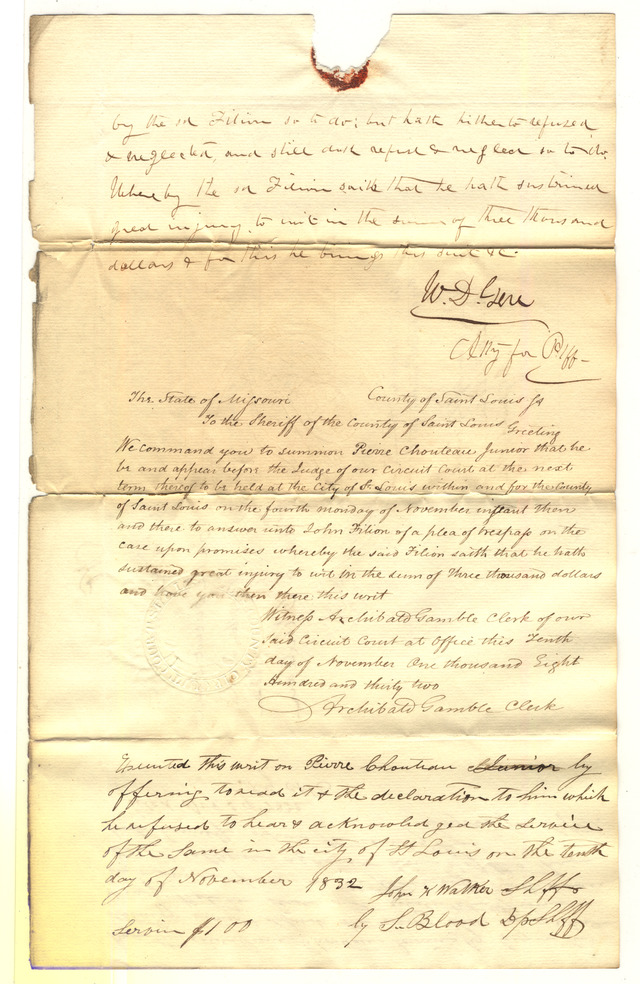 by the sd Filion so to do; but hath hitherto refused
& neglected, and still doth refuse & neglect so to do.
Whereby the sd Filion saith that he hath sustained
great injury, to wit in the sum of three thousand
dollars & for this he brings this suit &c
W. D. Gere
Atty for Plff
The State of Missouri County of Saint Louis Ss
To the Sheriff of the County of Saint Louis Greeting
We command you to summon Pierre Chouteau Junior that he
be and appear before the Judge of our Circuit Court at the next
term thereof to be held at the City of St Louis within and for the County
of Saint Louis on the fourth monday of November instant then
and there to answer unto John Filion of a plea of trespass on the
case upon promises whereby the said Filion saith that he hath
sustained great injury to wit in the sum of three thousand dollars
and have you then there this writ
Witness Archibald Gamble Clerk of our
said Circuit Court at Office this Tenth
day of November One thousand Eight
Hundred and thirty two
Archibald Gamble Clerk
Executed this writ on Pierre Chouteau Junior by
offering to read it & the declaration to him which
he refused to hear & acknowledged the service
of the same in the city of St Louis on the tenth
day of November 1832 John K Walker Shff
by S. Blood Dp Shff
Service $1 00